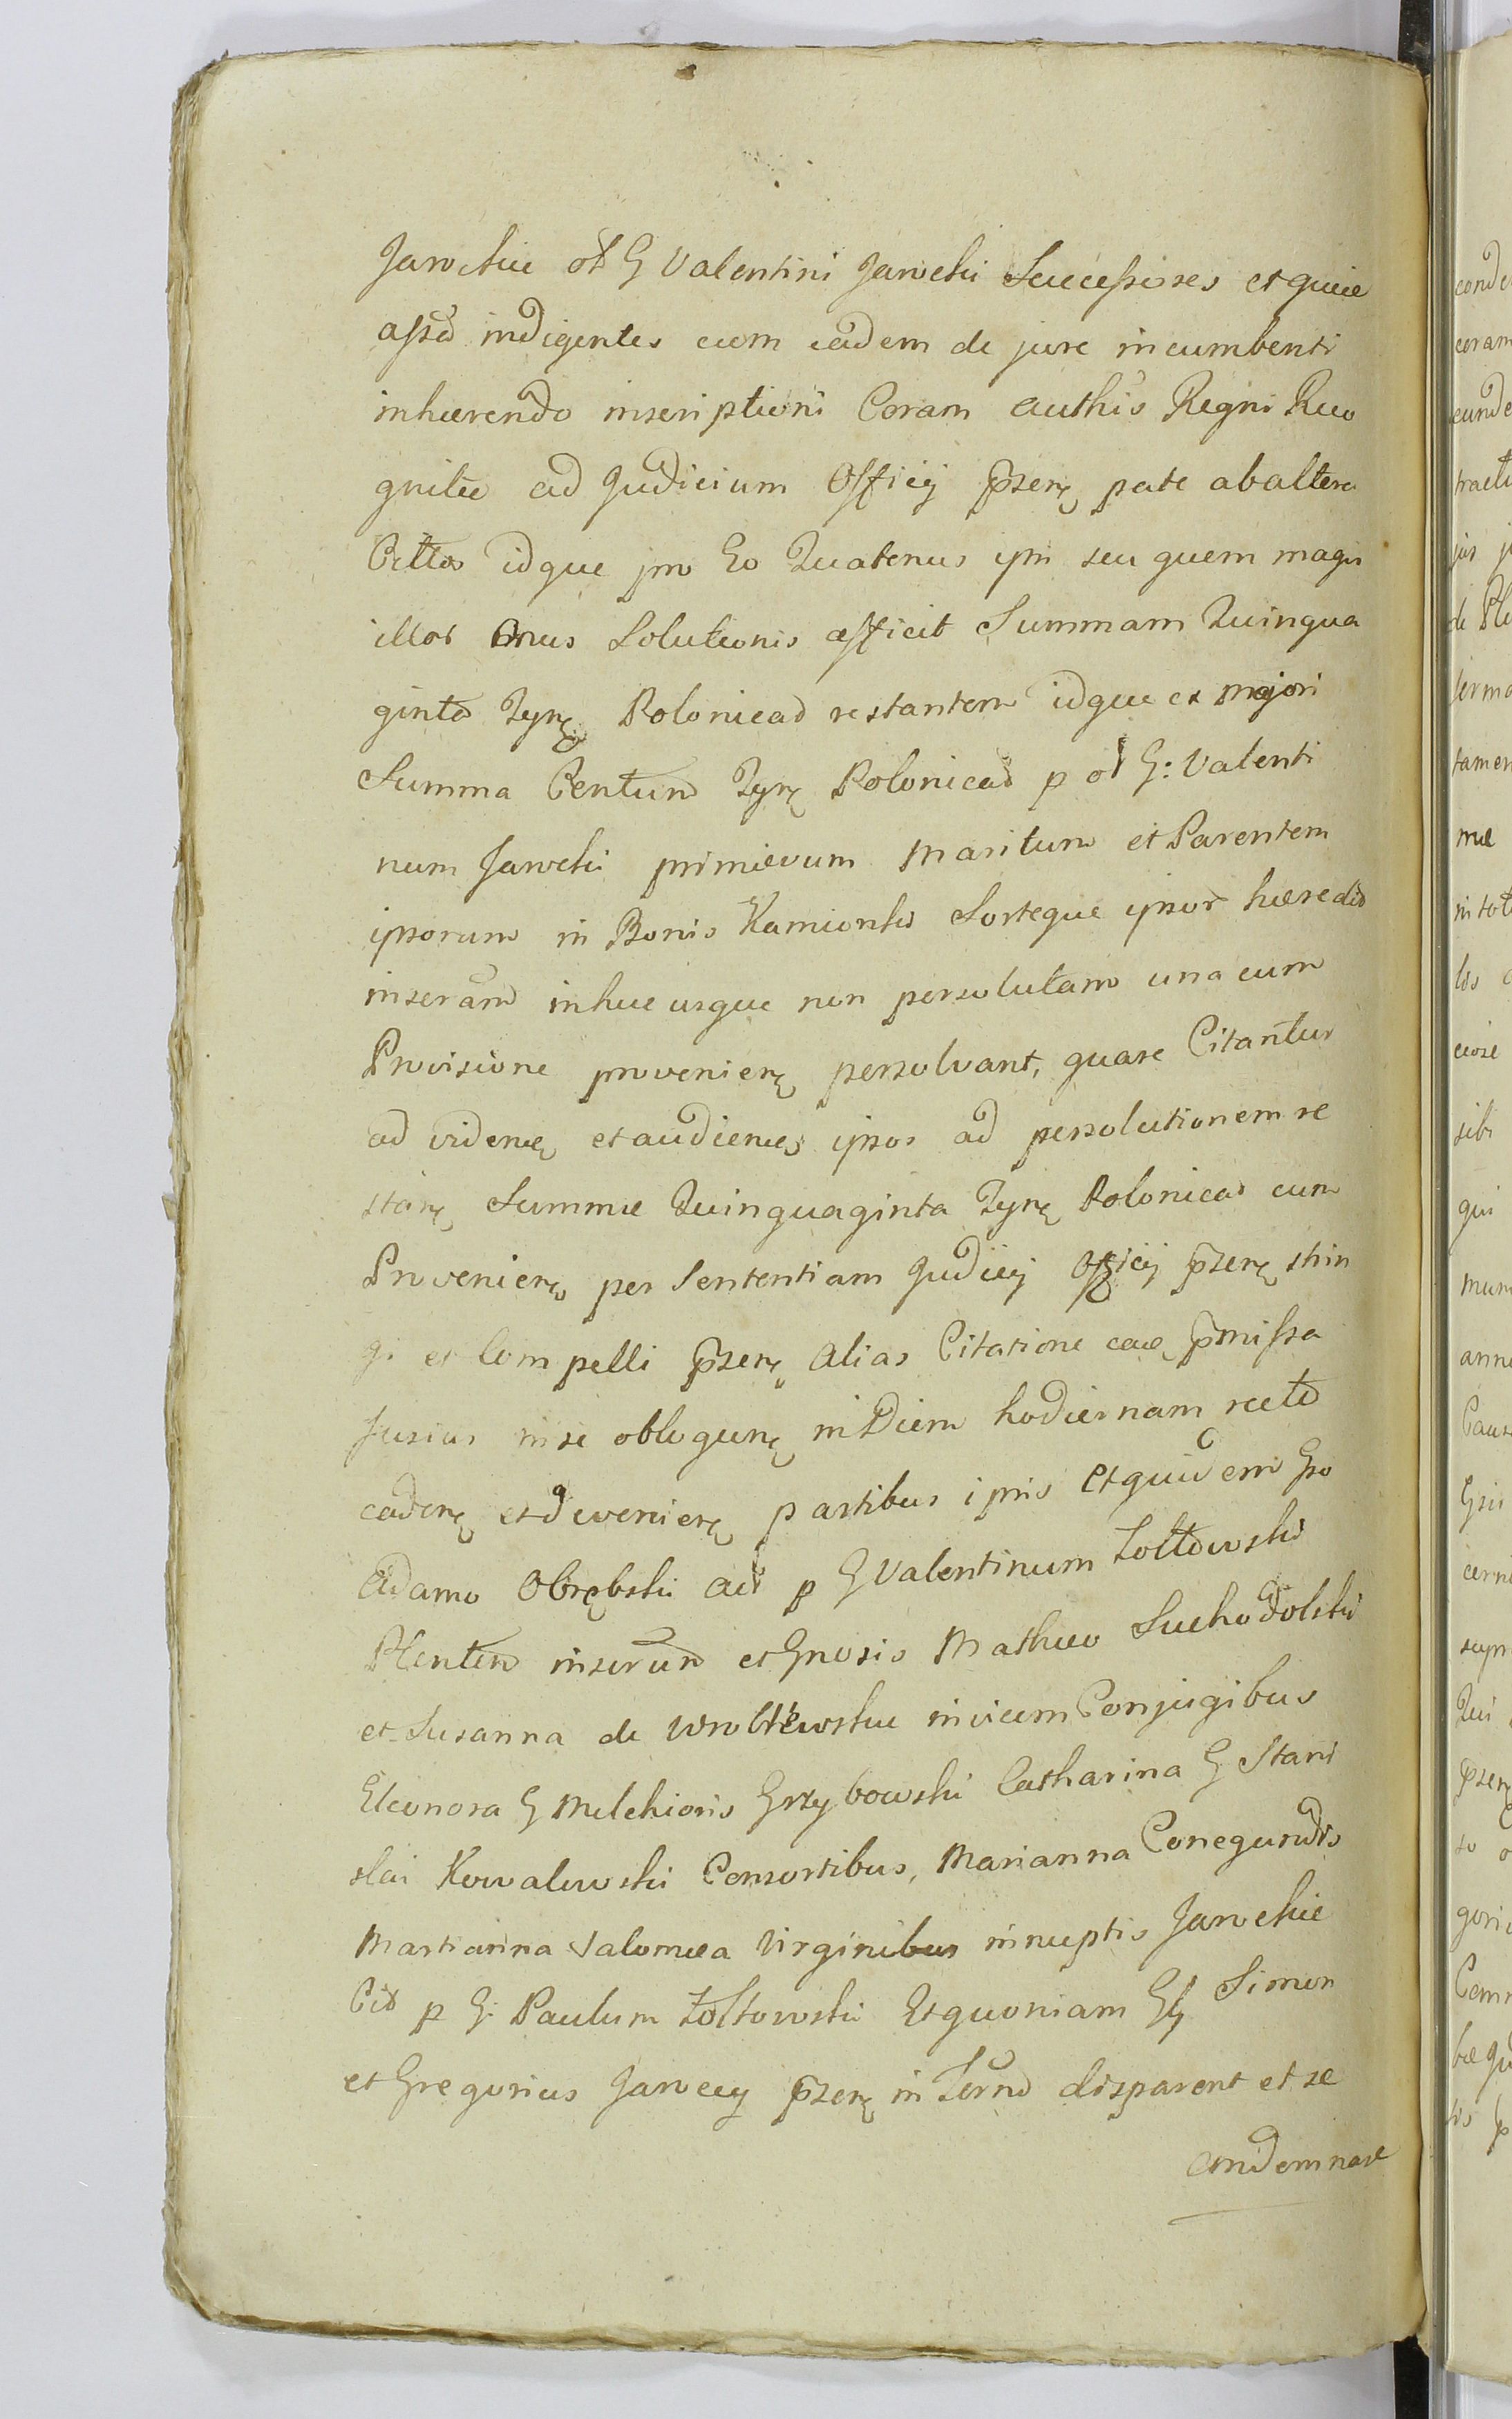 Jarockie ol G Valentini Jarocki Successores et quiae
assa indigentes cum eadem de jure incumbenti
inhaerendo inscriptioni Coram authis Regni Reco
gnitae ad Judicium Officij pser pate ab altera
Cittos idque pro Eo Quatenus ipsi seu quem magis
illor onus Solutionis afficit Summam Quinqua
ginta Tynf Polonicad restantem idque ex majori
Summa Centum Tynf Polonicad p ol G: Valenti
num Jarocki primaevum Maritum et Parentem
ipsorum in Bonis Kamionka Sorteque ipsor haeredid
inseram inhuc usque non persolutam una cum
Provisione provenien persolvant, quare Citantur
ad viden et audien ipsos ad persolutionem re
stan Summae Quinquaginta Tynf Polonicad cum
Provenien per Sententiam Judicij Officij pser strin
gi et Compelli pser alias Citatione cae pmissa
fusius in se obloquen in Diem hodiernam recte
caden et devenien partibus ipsis Et quidem Gso
Adamo Obrębski Act p G Valentinum Zołtowski
Plentem inserum et Gnosis Mathaeo Suchodolski
et Susanna de Wroblewskie invicem Conjugibus
Eleonora G Melchioris Grzybowski Catharina G Stani
slai Kowalewski Consortibus, Marianna Conegundis
Martianna Salomea Virginibus innuptis Jarockie
Cit p G: Paulum Zołtowski Et quoniam Gsi Simon
et Gregorius Jarocy pser in Termo disparent et se
condemnare

conde
coram
eunde
tracti
jus
de
tamen
mae
in tot
los
sibi
qui
anno
Caus
Qui
pser
Com